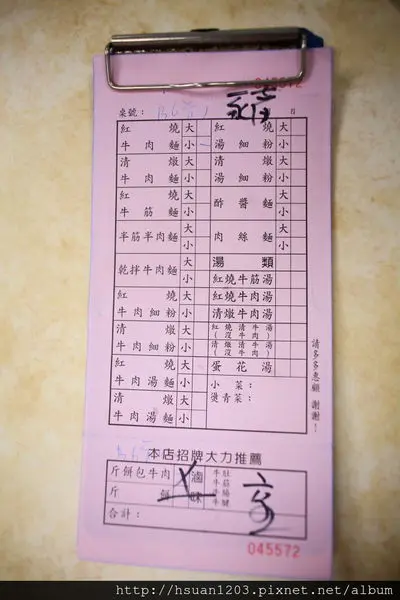 045572
桌號：
紅燒牛肉麵 大 小
紅燒湯細粉 大 小
清燉牛肉麵 大 小
清燉湯細粉 大 小
紅燒牛筋麵 大 小
酢醬麵 大 小
半筋半肉麵 大 小
肉絲麵 大 小
乾拌牛肉麵 大 小
湯類
紅燒牛筋湯
紅燒牛肉細粉 大 小
紅燒牛肉湯
清燉牛肉湯
清燉牛肉細粉 大 小
紅燒清牛湯（沒牛肉）
清燉清牛湯（沒牛肉）
紅燒牛肉湯麵 大 小
蛋花湯
清燉牛肉湯麵 大 小
小菜：
燙青菜：
請多多惠顧 謝謝！
本店招牌大力推薦
斤餅包牛肉
斤餅
滷味
牛肚
牛筋
牛腸
牛腱
合計：
045572
http://hsuan1203.pixnet.net/album